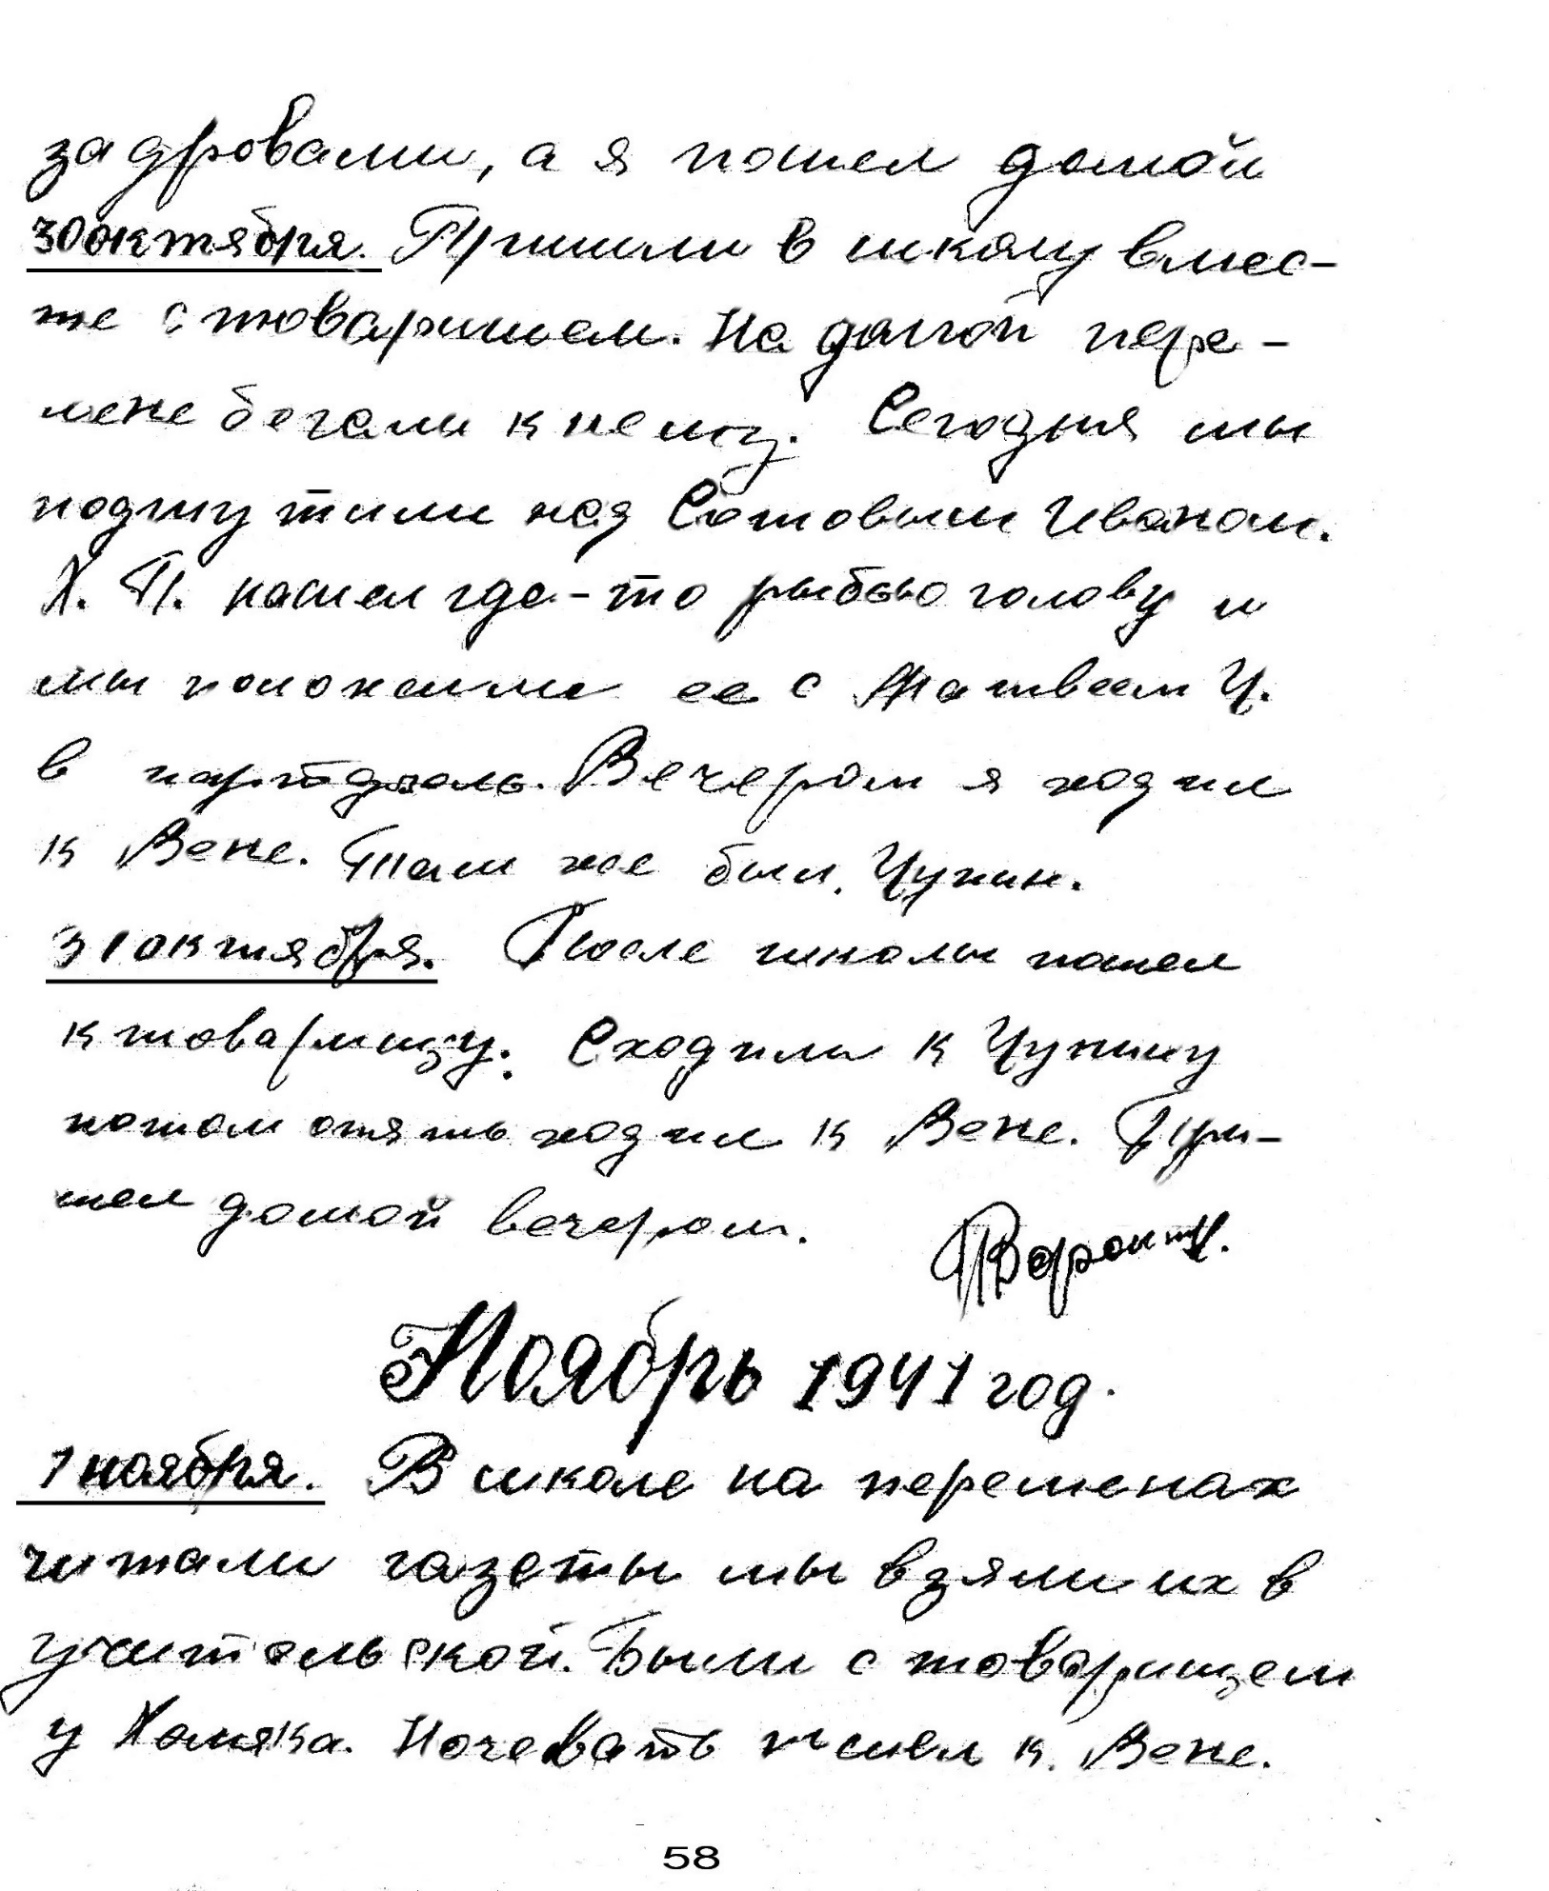 за дровами, а я пошел домой
30 октября. Пришли в школу вмес-
те с товарищем. На долгой пере-
мене бегали к нему. Сегодня мы
подшутили над Сотовым Иваном.
Х. П. нашел где-то рыбью голову и
мы положили ее с Матвеем Ч.
в портфель. Вечером я ходил
к Вене. Там же был Чупин.
31 октября. После школы пошел
к товарищу. Сходили к Чупину
потом опять ходил к Вене. При-
шел домой вечером.
Ноябрь 1941 год.
1 ноября. В школе на переменах
читали газеты мы взяли их в
учительской. Были с товарищем
у Хомяка. Ночевать пошел к Вене.
58